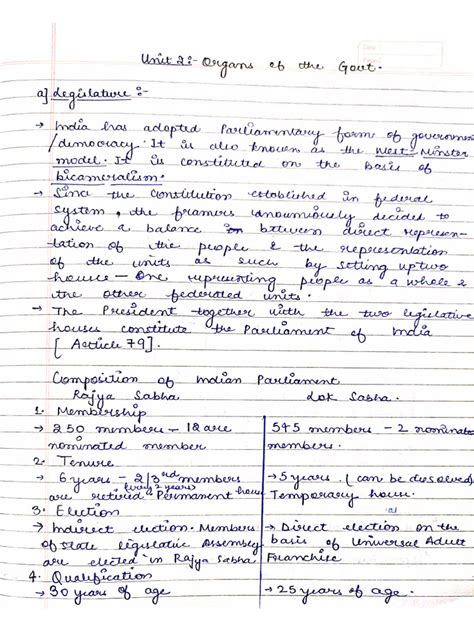 Unit 2:- Organs of the Govt.
a] Legislature :-
→ India has adopted Parliamentary form of government
/democracy. It is also known as the West-Minster
model. It is constituted on the basis of
bicameralism.
→ Since the Constitution established in federal
system, the framers unanimously decided to
achieve a balance in between direct represen-
tation of the people & the representation
of the units as such by setting up two
house - One representing people as a whole &
the other federated units.
→ The President together with the two legislative
houses constitute the Parliament of India
[Article 79].
Composition of Indian Parliament
Rajya Sabha Lok Sabha.
1. Membership
→ 250 members - 12 are → 545 members - 2 nominated
nominated member members.
2. Tenure
→ 6 years - 2/3rd members → 5 years. (can be desolved)
are retired (every 2 years) Permanent house Temporary house.
3. Election
→ Indirect election. Members → Direct election on the
of state legislative Assembly basis of Universal Adult
are elected in Rajya Sabha Franchise
4. Qualification
→ 30 years of age → 25 years of age.